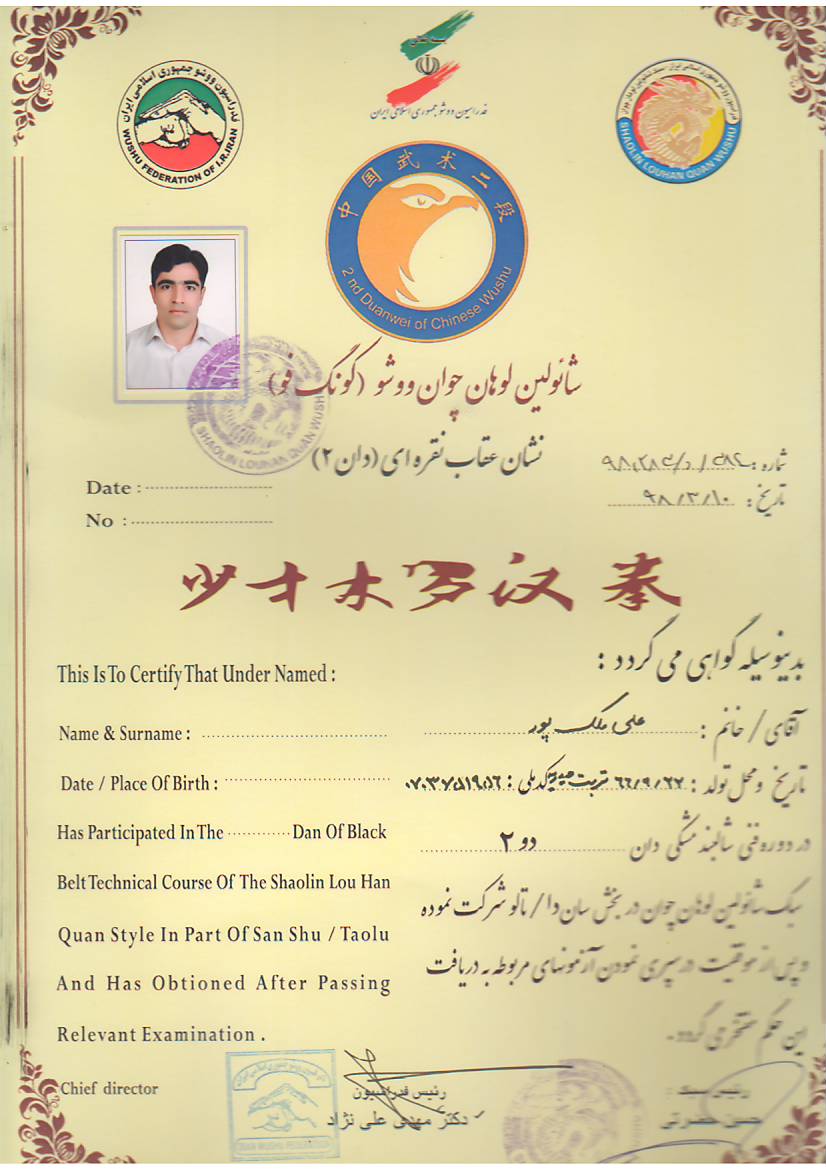 بسمه تعالی
فدراسیون ووشو جمهوری اسلامی ایران
فدراسیون ووشو جمهوری اسلامی ایران
WUSHU FEDERATION OF I.R.IRAN
SHAOLIN LOUHAN QUAN WUSHU
中国武术二段
2 nd Duanwei of Chinese Wushu
شائولین لوهان چوان ووشو (کونگ فو)
SHAOLIN LOUHAN QUAN WUSHU
نشان عقاب نقره ای (دان ۲)
شماره :
تاریخ : ۹۸/۳/۱۰
Date :
No :
少林罗汉拳
This Is To Certify That Under Named :
بدینوسیله گواهی می گردد :
Name & Surname :
آقای / خانم : علی ملک پور
Date / Place Of Birth :
تاریخ و محل تولد : ۶۶/۹/۲۷ تربت حیدریه کد ملی : ۰۷۰۳۷۵۱۹۵۶
Has Participated In The Dan Of Black
در دوره فنی شالبند مشکی دان دو ۲
Belt Technical Course Of The Shaolin Lou Han
سبک شائولین لوهان چوان در بخش سان دا / تالو شرکت نموده
Quan Style In Part Of San Shu / Taolu
و پس از موفقیت در سپری نمودن آزمونهای مربوطه به دریافت
And Has Obtioned After Passing
این حکم مفتخر می گردد.
Relevant Examination .
Chief director
رئیس فدراسیون
دکتر مهدی علی نژاد
رئیس سبک :
حسن حضرتی